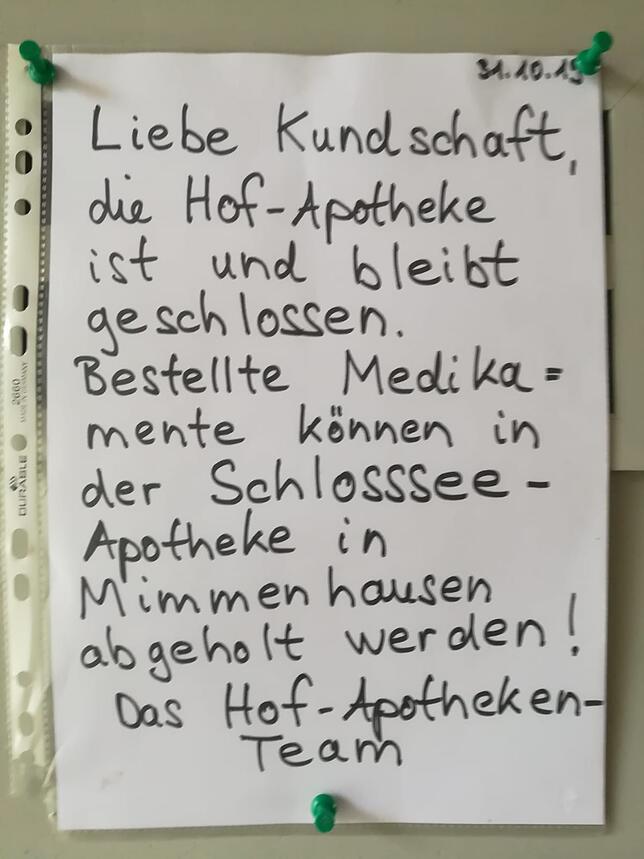 31.10.19
Liebe Kundschaft,
die Hof-Apotheke
ist und bleibt
geschlossen.
Bestellte Medika=
mente können in
der Schlosssee-
Apotheke in
Mimmenhausen
abgeholt werden!
Das Hof-Apotheken-
Team
2660
MADE IN GERMANY
DURABLE